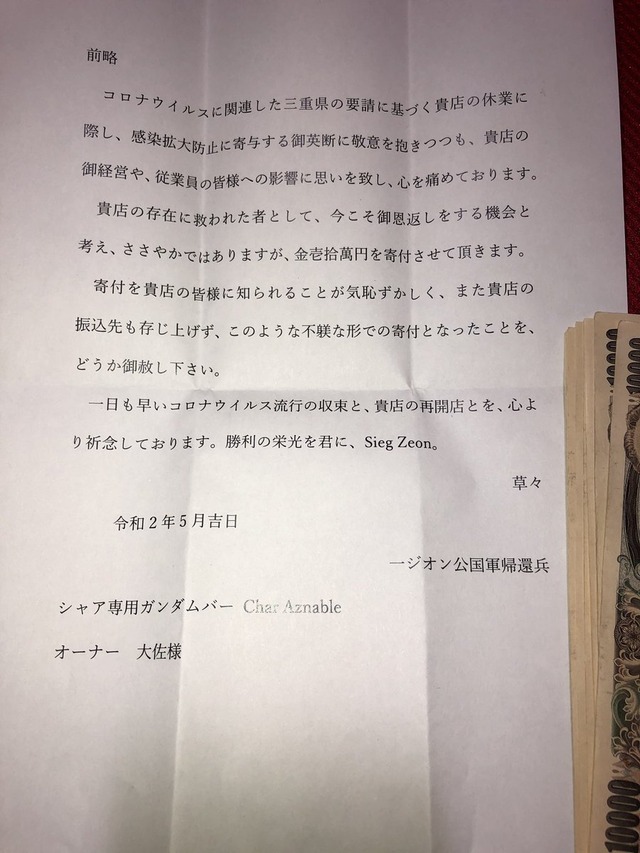 前略
コロナウイルスに関連した三重県の要請に基づく貴店の休業に
際し、感染拡大防止に寄与する御英断に敬意を抱きつつも、貴店の
御経営や、従業員の皆様への影響に思いを致し、心を痛めております。
貴店の存在に救われた者として、今こそ御恩返しをする機会と
考え、ささやかではありますが、金壱拾萬円を寄付させて頂きます。
寄付を貴店の皆様に知られることが気恥ずかしく、また貴店の
振込先も存じ上げず、このような不躾な形での寄付となったことを、
どうか御赦し下さい。
一日も早いコロナウイルス流行の収束と、貴店の再開店とを、心よ
り祈念しております。勝利の栄光を君に、Sieg Zeon。
草々
令和2年5月吉日
一ジオン公国軍帰還兵
シャア専用ガンダムバー Char Aznable
オーナー 大佐様
10000
10000
10000